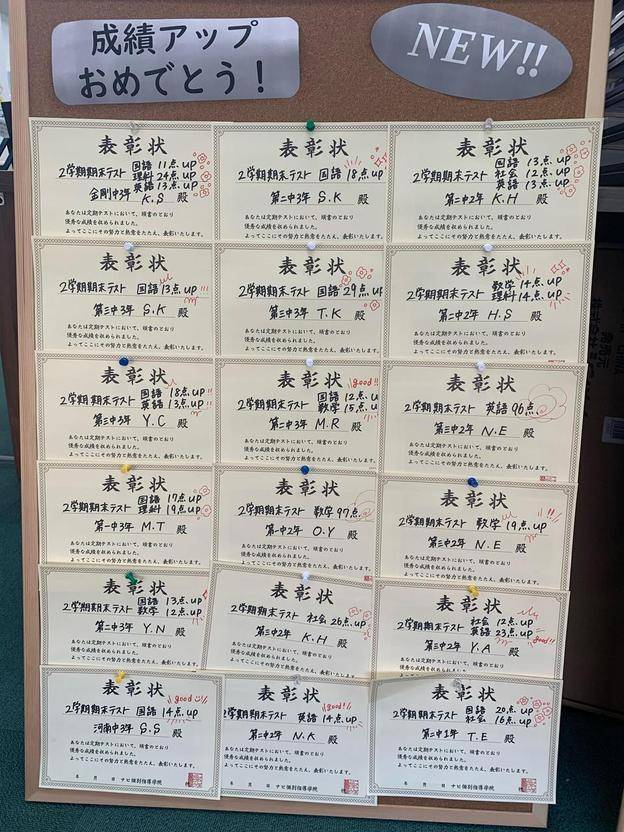 成績アップ
おめでとう！
NEW!!
表彰状
2学期期末テスト
国語 11点.up
理科 24点.up
英語 13点.up
金剛中3年 K.S 殿
あなたは定期テストにおいて、頭書のとおり
優秀な成績を収められました。
よってここにその努力と熱意をたたえ、表彰いたします。
表彰状
2学期期末テスト 国語 18点.up
第二中3年 S.K 殿
あなたは定期テストにおいて、頭書のとおり
優秀な成績を収められました。
よってここにその努力と熱意をたたえ、表彰いたします。
表彰状
2学期期末テスト
国語 13点.up
社会 12点.up
英語 13点.up
第二中2年 K.H 殿
あなたは定期テストにおいて、頭書のとおり
優秀な成績を収められました。
よってここにその努力と熱意をたたえ、表彰いたします。
表彰状
2学期期末テスト 国語 13点.up
第三中3年 S.K 殿
あなたは定期テストにおいて、頭書のとおり
優秀な成績を収められました。
よってここにその努力と熱意をたたえ、表彰いたします。
表彰状
2学期期末テスト 国語 29点.up
第三中3年 T.K 殿
あなたは定期テストにおいて、頭書のとおり
優秀な成績を収められました。
よってここにその努力と熱意をたたえ、表彰いたします。
表彰状
2学期期末テスト
数学 14点.up
理科 14点.up
第二中2年 H.S 殿
あなたは定期テストにおいて、頭書のとおり
優秀な成績を収められました。
よってここにその努力と熱意をたたえ、表彰いたします。
表彰状
2学期期末テスト
国語 18点.up
英語 13点.up
第三中3年 Y.C 殿
あなたは定期テストにおいて、頭書のとおり
優秀な成績を収められました。
よってここにその努力と熱意をたたえ、表彰いたします。
表彰状
good!!
2学期期末テスト
国語 12点.u
数学 15点.u
第三中3年 M.R 殿
あなたは定期テストにおいて、頭書のとおり
優秀な成績を収められました。
よってここにその努力と熱意をたたえ、表彰いたします。
表彰状
2学期期末テスト 英語 96点
第三中2年 N.E 殿
あなたは定期テストにおいて、頭書のとおり
優秀な成績を収められました。
よってここにその努力と熱意をたたえ、表彰いたします。
表彰状
2学期期末テスト
国語 17点.up
理科 19点.up
第一中3年 M.T 殿
あなたは定期テストにおいて、頭書のとおり
優秀な成績を収められました。
よってここにその努力と熱意をたたえ、表彰いたします。
表彰状
2学期期末テスト 数学 97点
第一中2年 O.Y 殿
あなたは定期テストにおいて、頭書のとおり
優秀な成績を収められました。
よってここにその努力と熱意をたたえ、表彰いたします。
表彰状
2学期期末テスト 数学 19点.up
第三中2年 N.E 殿
あなたは定期テストにおいて、頭書のとおり
優秀な成績を収められました。
よってここにその努力と熱意をたたえ、表彰いたします。
表彰状
2学期期末テスト
国語 13点.up
数学 12点.up
第二中3年 Y.N 殿
あなたは定期テストにおいて、頭書のとおり
優秀な成績を収められました。
よってここにその努力と熱意をたたえ、表彰いたします。
表彰状
2学期期末テスト 社会 26点.up
第三中2年 K.H 殿
あなたは定期テストにおいて、頭書のとおり
優秀な成績を収められました。
よってここにその努力と熱意をたたえ、表彰いたします。
表彰状
2学期期末テスト
社会 12点.up
英語 23点.up
good!!
第三中2年 Y.A 殿
あなたは定期テストにおいて、頭書のとおり
優秀な成績を収められました。
よってここにその努力と熱意をたたえ、表彰いたします。
表彰状
good!!
2学期期末テスト 国語 14点.up
河南中3年 S.S 殿
あなたは定期テストにおいて、頭書のとおり
優秀な成績を収められました。
よってここにその努力と熱意をたたえ、表彰いたします。
年 月 日 ナビ個別指導学院
表彰状
good!!
2学期期末テスト 英語 14点.up
第二中2年 N.K 殿
あなたは定期テストにおいて、頭書のとおり
優秀な成績を収められました。
よってここにその努力と熱意をたたえ、表彰いたします。
年 月 日 ナビ個別指導学院
表彰状
2学期期末テスト
国語 20点.up
社会 16点.up
第二中1年 T.E 殿
あなたは定期テストにおいて、頭書のとおり
優秀な成績を収められました。
よってここにその努力と熱意をたたえ、表彰いたします。
年 月 日 ナビ個別指導学院